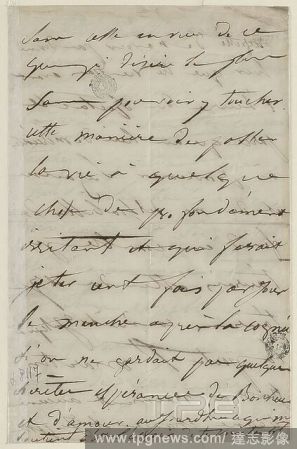 Sans cesse en vue de ce
que j'ai désiré le plus
sans pouvoir y toucher
cette manière de passer
la vie a quelque
chose de profondément
irritant et qui ferait
jeter cent fois par jour
le manche après la cognée
si l'on ne gardait pas quelque
secrète espérance de Bonheur
et d'amour, aujourd'hui qui me
soutient
TPG
www.tpgnews.com / 達志影像